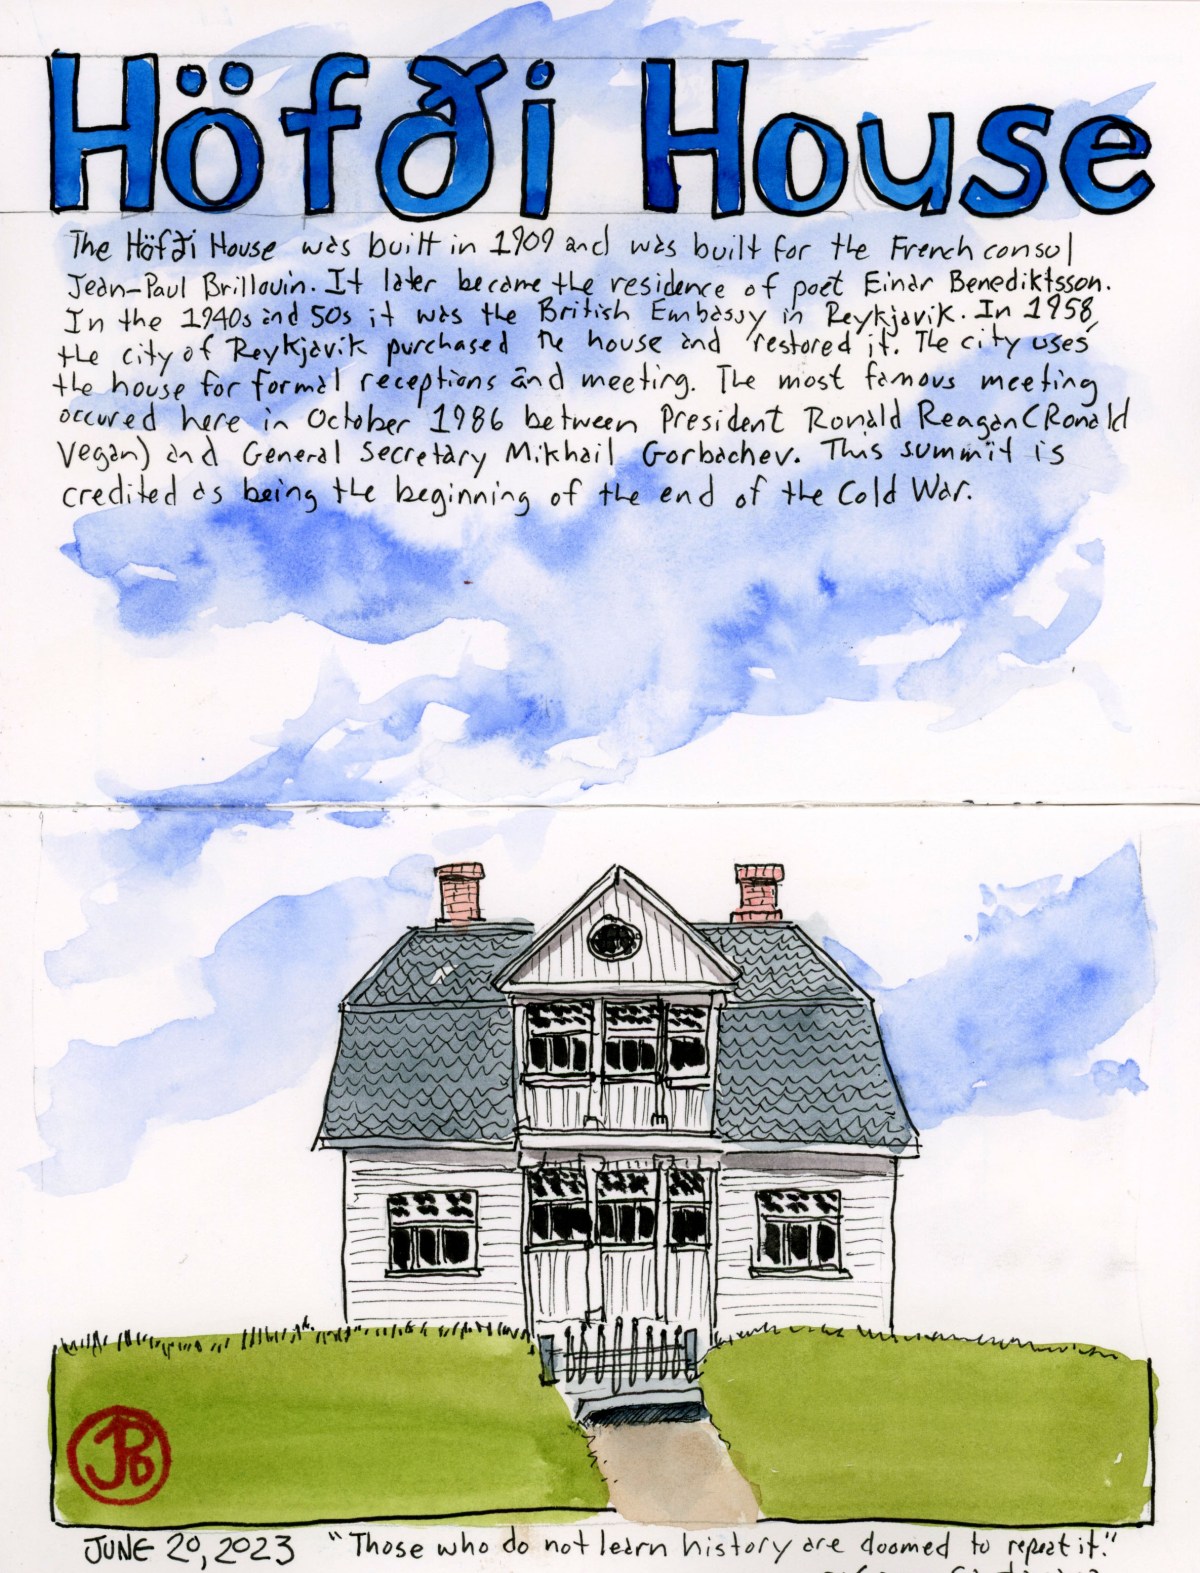 Höfði House
The Höfði House was built in 1909 and was built for the French consul
Jean-Paul Brillouin. It later became the residence of poet Einar Benediktsson.
In the 1940s and 50s it was the British Embassy in Reykjavik. In 1958,
the city of Reykjavik purchased the house and restored it. The city uses
the house for formal receptions and meeting. The most famous meeting
occured here in October 1986 between President Ronald Reagan (Ronald
Vegan) and General Secretary Mikhail Gorbachev. This summit is
credited as being the beginning of the end of the Cold War.
JPB
JUNE 20, 2023 "Those who do not learn history are doomed to repeat it."